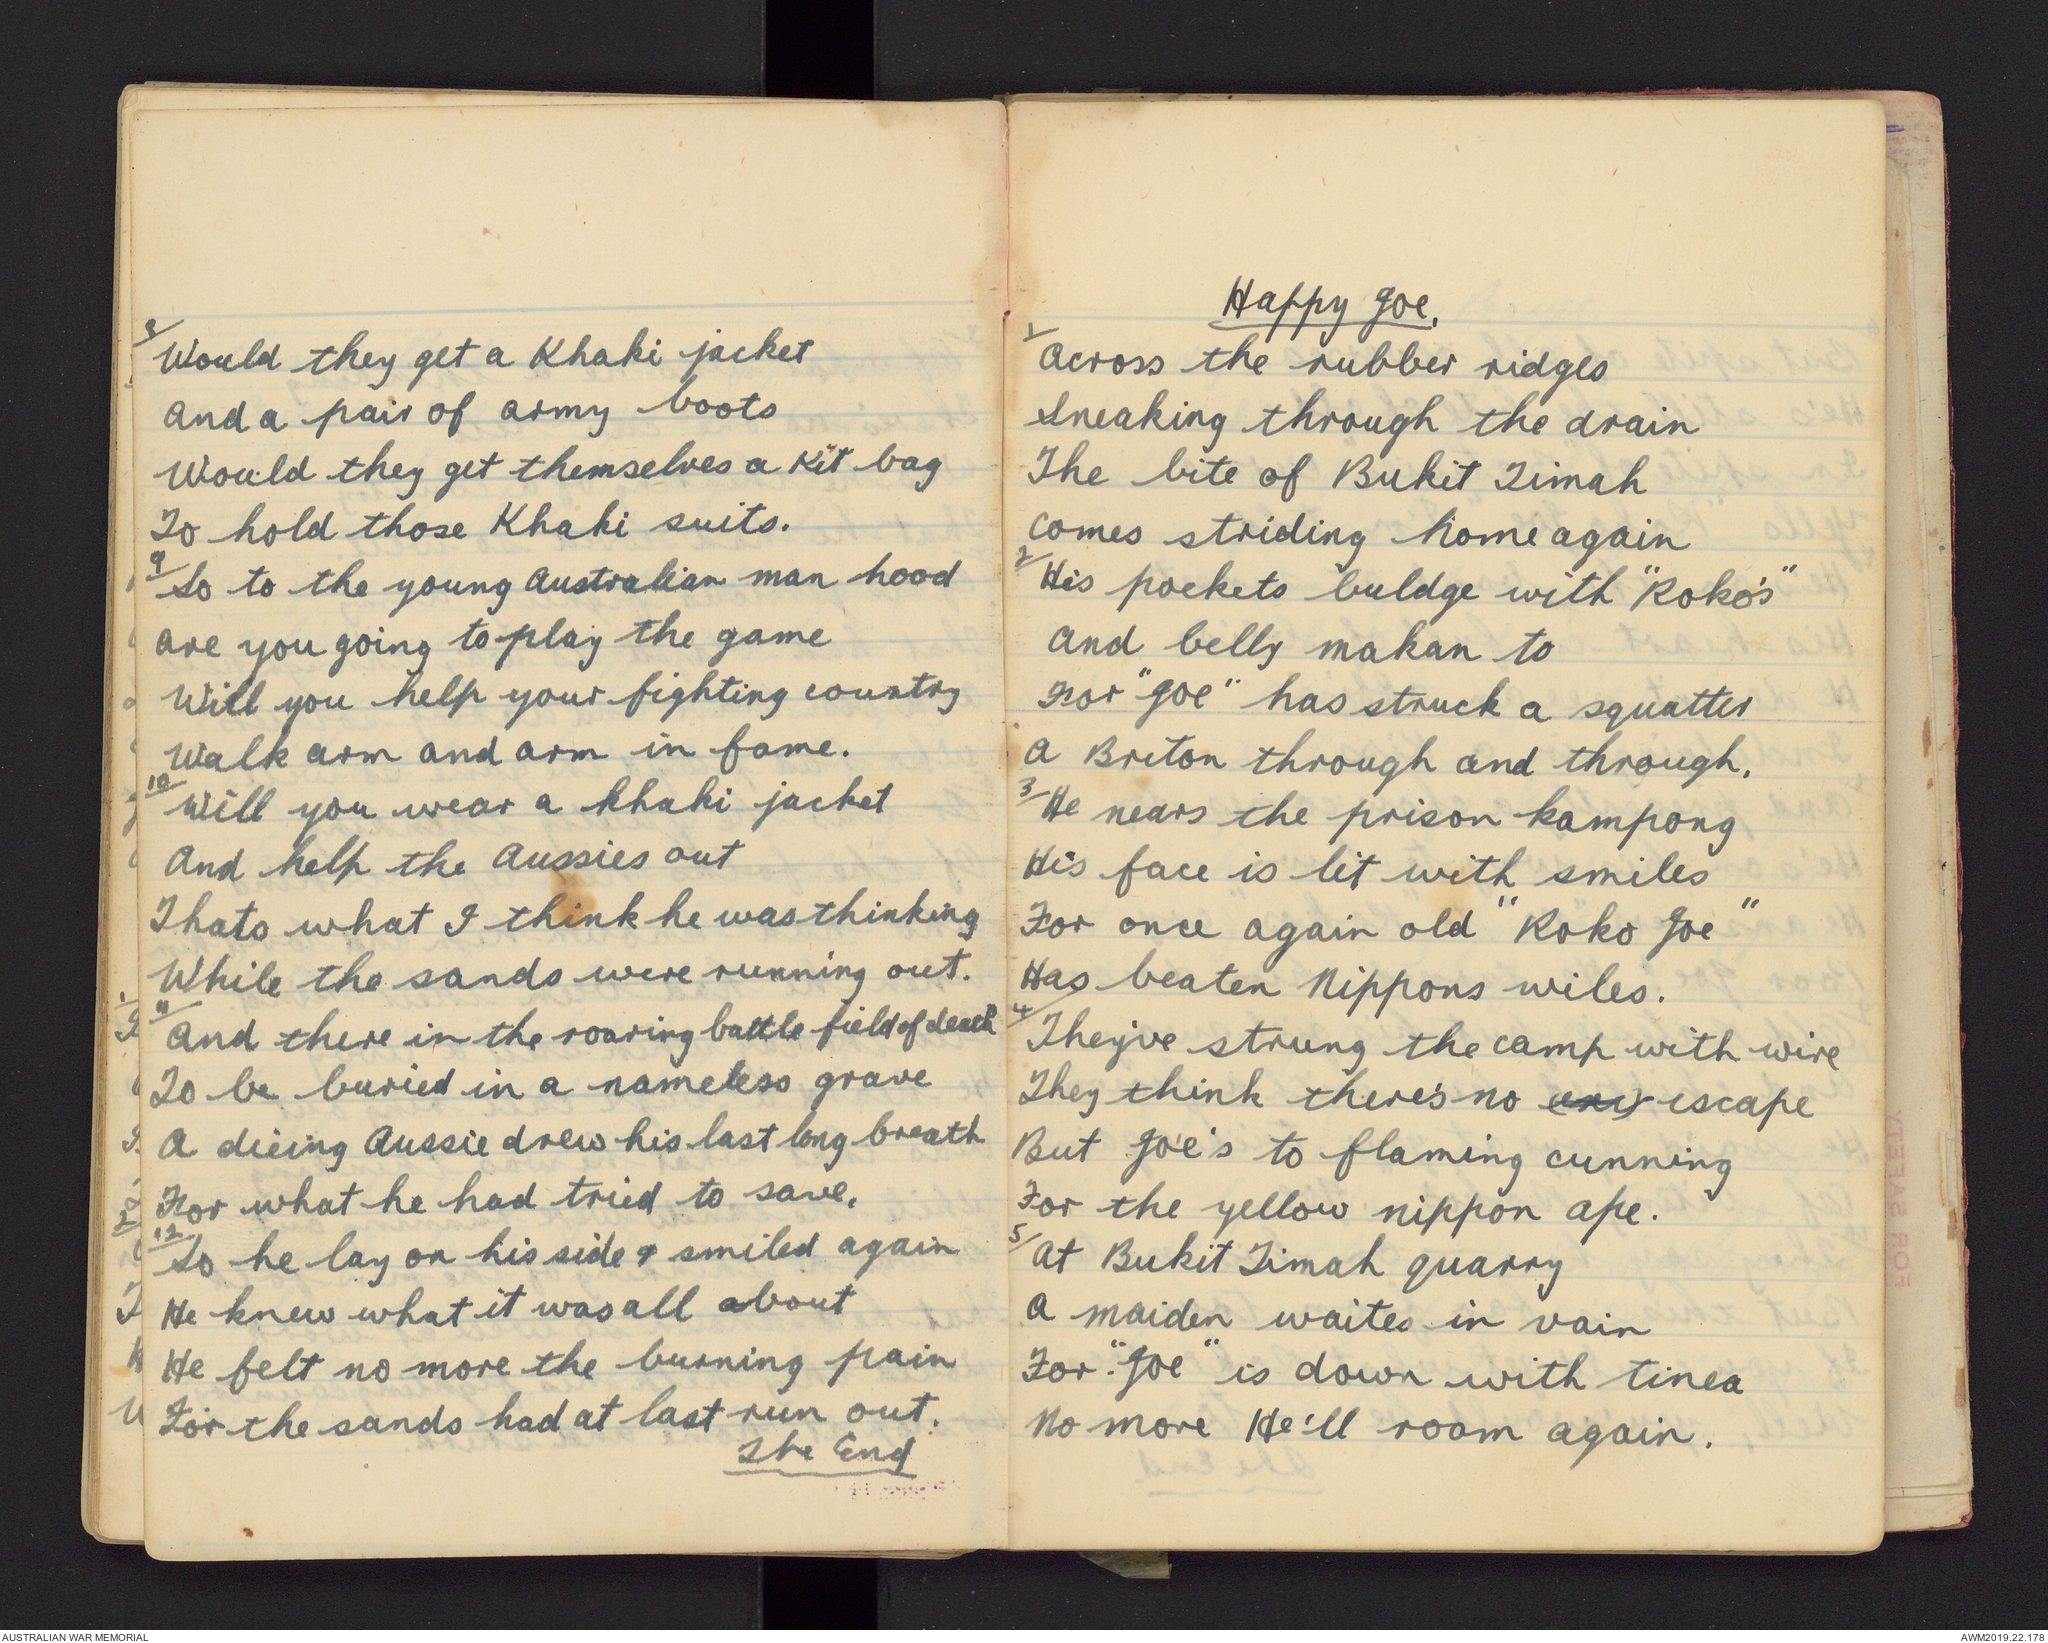 8/
Would they get a Khaki jacket
And a pair of army boots
Would they get themselves a Kit bag
To hold those Khaki suits.
9/
So to the young Australian man hood
Are you going to play the game
Will you help your fighting country
Walk arm and arm in fame.
10/
Will you wear a khaki jacket
And help the Aussies out
Thats what I think he was thinking
While the sands were running out.
11/
And there in the roaring battle field of death
To be buried in a nameless grave
A dieing Aussie drew his last long breath
For what he had tried to save.
12/
So he lay on his side & smiled again
He knew what it was all about
He felt no more the burning pain
For the sands had at last run out.
The End
Happy Joe.
1/
Across the rubber ridges
Sneaking through the drain
The bite of Bukit Timah
Comes striding home again
2/
His pockets buldge with "Roko's"
And belly makan to
For "Joe" has struck a squatter
A Briton through and through.
3/
He nears the prison kampong
His face is lit with smiles
For once again old "Roko Joe"
Has beaten Nippons wiles.
4/
They've strung the camp with wire
They think there's no escape
But Joe's to flaming cunning
For the yellow nippon ape.
5/
At Bukit Timah quarry
A maiden waites in vain
For "Joe" is down with tinea
No more He'll roam again.
FOR SAFETY
AUSTRALIAN WAR MEMORIAL
AWM2019.22.178